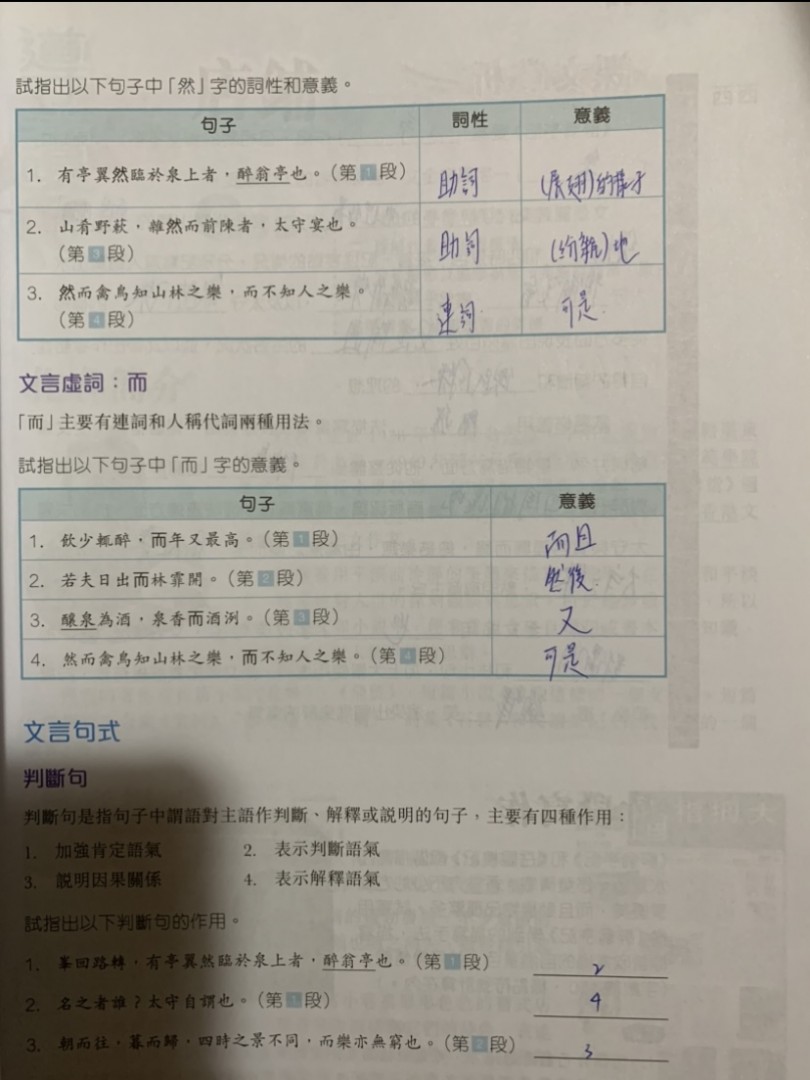 試指出以下句子中「然」字的詞性和意義。
句子 詞性 意義
1. 有亭翼然臨於泉上者，醉翁亭也。（第1段） 助詞 (展翅)的樣子
2. 山肴野蔌，雜然而前陳者，太守宴也。
（第3段） 助詞 地
3. 然而禽鳥知山林之樂，而不知人之樂。
（第4段） 連詞 可是
文言虛詞：而
「而」主要有連詞和人稱代詞兩種用法。
試指出以下句子中「而」字的意義。
句子 意義
1. 飲少輒醉，而年又最高。（第1段） 而且
2. 若夫日出而林霏開。（第2段） 然後
3. 釀泉為酒，泉香而酒洌。（第3段） 又
4. 然而禽鳥知山林之樂，而不知人之樂。（第4段） 可是
文言句式
判斷句
判斷句是指句子中謂語對主語作判斷、解釋或說明的句子，主要有四種作用：
1. 加強肯定語氣 2. 表示判斷語氣
3. 說明因果關係 4. 表示解釋語氣
試指出以下判斷句的作用。
1. 峯回路轉，有亭翼然臨於泉上者，醉翁亭也。（第1段） 2
2. 名之者誰？太守自謂也。（第1段） 4
3. 朝而往，暮而歸，四時之景不同，而樂亦無窮也。（第2段） 3